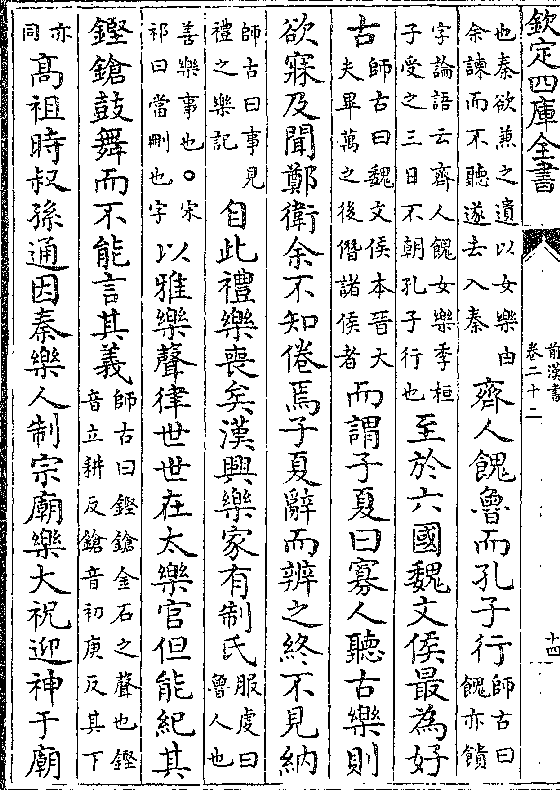 欽定四庫全書
前漢書
卷二十二
十四
也秦欲兼之遺以女樂由
余諫而不聽遂去入秦
齊人餽魯而孔子行
師古曰
餽亦饋
字論語云齊人餽女樂季桓
子受之三日不朝孔子行也
至於六國魏文侯最為好
古
師古曰魏文侯本晉大
夫畢萬之後僭諸侯者
而謂子夏曰寡人聽古樂則
欲寐及聞鄭衛余不知倦焉子夏辭而辨之終不見納
師古曰事見
禮之樂記
自此禮樂喪矣漢興樂家有制氏
服虔曰
魯人也
善樂事也○宋
祁曰當刪也字
以雅樂聲律世世在太樂官但能紀其
鏗鎗鼓舞而不能言其義
師古曰鏗鎗金石之聲也鏗
音立耕反鎗音初庚反其下
亦
同
高祖時叔孫通因秦樂人制宗廟樂大祝迎神于廟